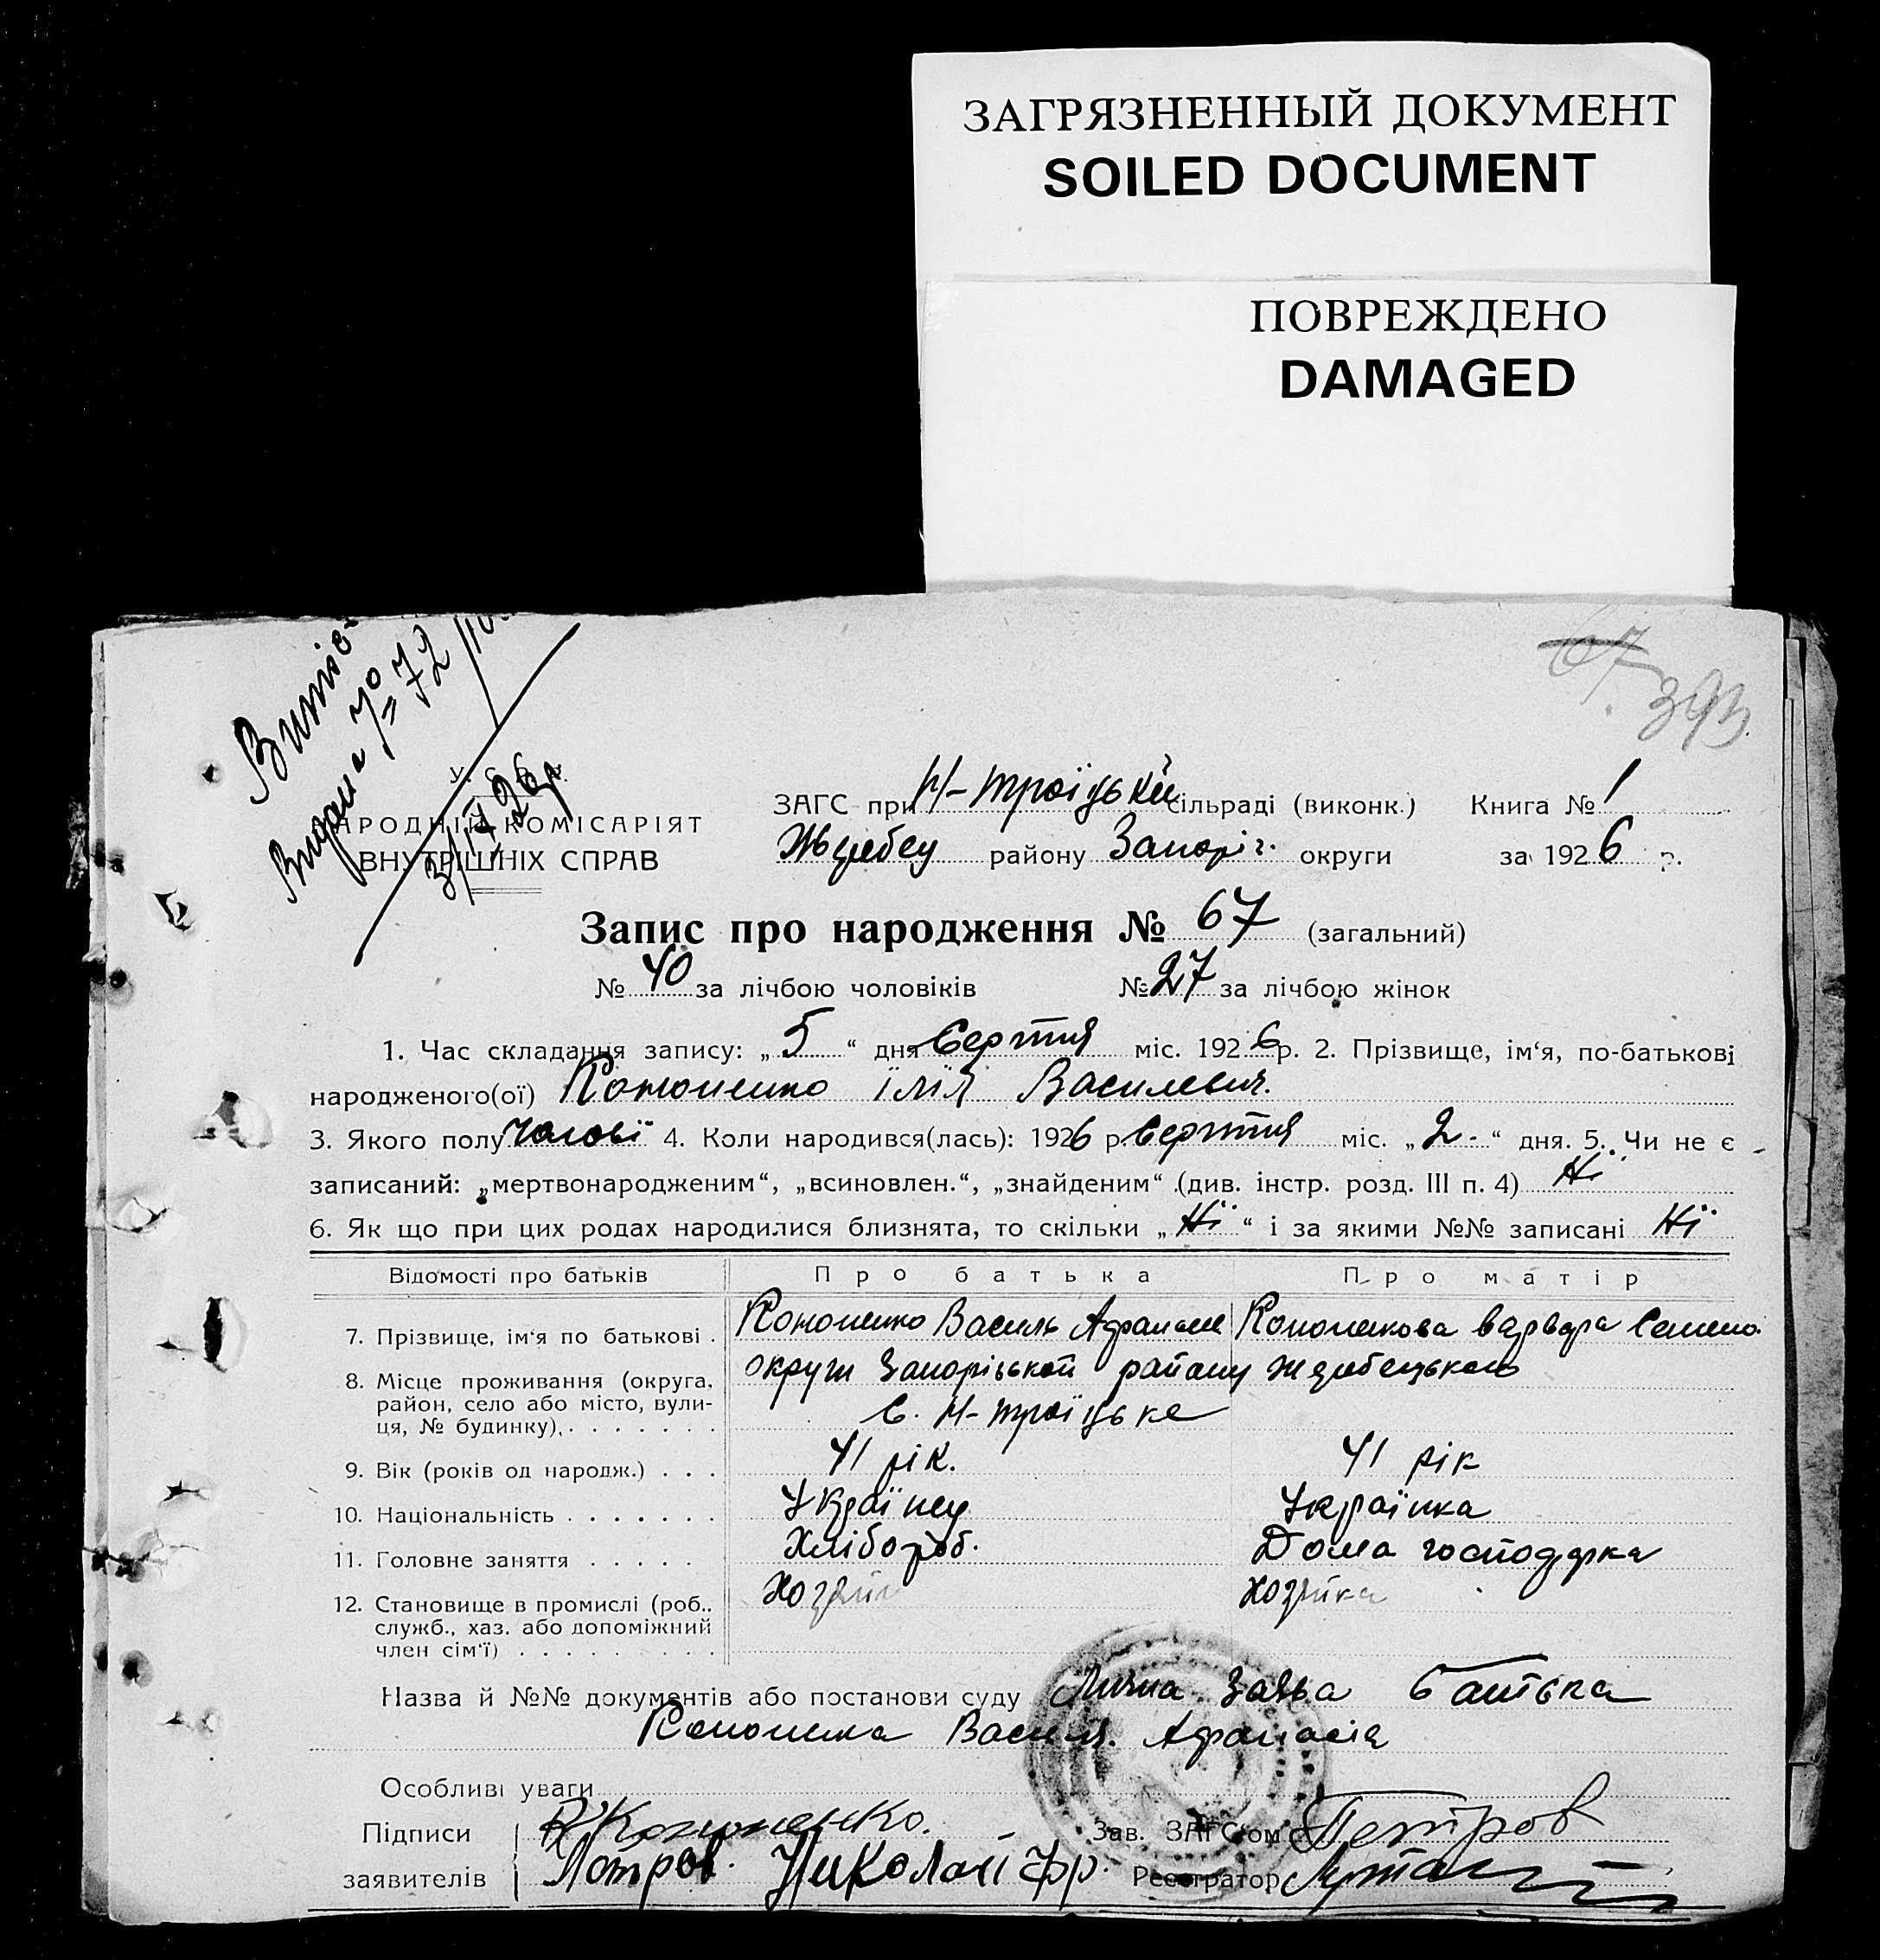 ЗАГРЯЗНЕННЫЙ ДОКУМЕНТ
SOILED DOCUMENT
ПОВРЕЖДЕНО
DAMAGED
67
393
Видана № 72
У. С. Р. Р.
НАРОДНІЙ КОМІСАРІЯТ
ВНУТРІШНІХ СПРАВ
ЗАГС при Н-Троїцькій сільраді (виконк.) Книга № 1
Жеребец району Запоріг. округи за 1926 р.
Запис про народження № 67 (загальний)
№ 40 за лічбою чоловіків № 27 за лічбою жінок
1. Час складання запису: „5“ дня Серпня міс. 1926 р. 2. Прізвище, ім‘я, по-батькові
народженого(ої) Кононенко Ілія Василевич.
3. Якого полу чолові 4. Коли народився(лась): 1926 р. Серпня міс. „2.“ дня. 5. Чи не є
записаний: „мертвонародженим“, „всиновлен.“, „знайденим“ (див. інстр. розд. III п. 4) Ні
6. Як що при цих родах народилися близнята, то скільки „Ні“ і за якими №№ записані Ні
Відомості про батьків Про батька Про матір
7. Прізвище, ім‘я по батькові . Кононенко Василь Афанасіе Кононенкова Варвара Семено.
8. Місце проживання (округа, район, село або місто, вулиця, № будинку), . . . . . . . округи Запорізькой району Жеребецького
С. Н-Троїцьке
9. Вік (років од народж.) . . . 41 рік. 41 рік
10. Національність . . . . . . . Українец Українка
11. Головне заняття . . . . . Хлібороб. Дома господарка
12. Становище в промислі (роб., Хозяин Хозяйка
служб., хаз. або допоміжний
член сім‘ї) . . . . . . . .
Назва й №№ документів або постанови суду Лична Заява Батька
Кононенка Василя. Афанасія
Особливі уваги
Підписи В Кононенко. Зав. ЗАГС‘ом Петров
заявителів Петров. Николай Фр. Реєстратор